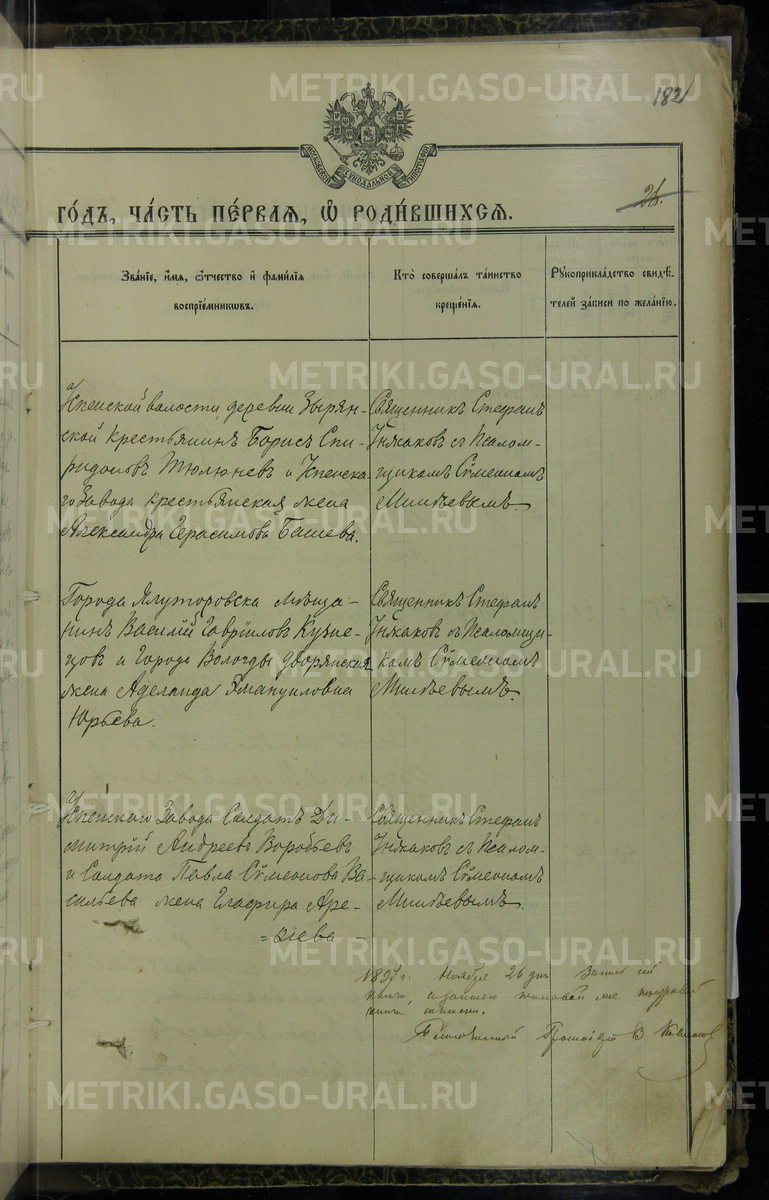 METRIKI.GASO-URAL.RU
182
МОСКОВСКОЙ СѴНОДАЛЬНОЙ ТИПОГРАФІИ
26.
ГО́ДЪ, ЧА́СТЬ ПЕ́РВАЯ, Ѽ РОДИ́ВШИХСЯ.
Зва́нїе, и҆́мя, ѻ҆́тчество и҆ фами́лїя
воспрїе́мникѡвъ.
Кто̀ соверша́лъ та́инство
креще́нїя.
Рꙋкоприкла́дство свидѣ́-
телей за́писи по жела́нїю.
волости, деревни Зырян-
ской Крестьянинъ Борисъ Спи-
ридоновъ Тюлюневъ и
го Завода крестьянская жена
Александра Герасимова Башева.
Священникъ Стефанъ
Инжаковъ съ Псалом-
щикомъ Сѵмеономъ
Города Ялуторовска мѣща-
нинъ Василій Гаврїиловъ Кузне-
цовъ и Города Вологды дворянская
жена Аделаида Эмануиловна
Юрьева.
Священникъ Стефанъ
Инжаковъ съ Псаломщи-
комъ Сѵмеономъ
Завода Солдатъ Ди-
митрій Андреевъ Воробьевъ
и Солдата Павла Сѵмеонова Ва-
сильева жена Глафира Аре-
=віева –
Священникъ Стефанъ
Инжаковъ съ Псалом-
щикомъ Сѵмеономъ
1897 г. Ноября 26 дня
книги